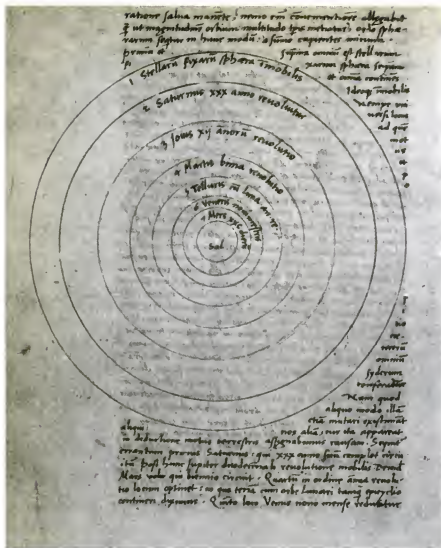 ratione salua manete, nemo em conuenientiore allegabit
q ut magnitudinem orbium multitudo tpis metiatur: ordo sphe-
rarum sequitur in hunc modu: a summo capientes initium.
prima et suprema omniu est stellarum
fixarum sphaera seipsam
et omnia continens
Ideoq imobilis
nempe uni
uersi locus
ad que
mot
us
et
1 Stellarum fixarum sphaera imobilis
2 Saturnus xxx anno reuoluitur
3 Jouis xij anorum reuolutio
4 Martis bima reuolutio
5 Telluris cu luna an re.
6 Veneris nonimestris
7 Merc xxc dierum
Sol
tertiu
omniu
syderum
Nam quod
aliquo modo illa
etia mutari existimant
aliqui: nos alia, cur ita appareat
in deductione motus terrestris assignabimus causam. Sequitur
errantium primus Saturnus: qui xxx anno suum complet circu
itu. post hunc Jupiter duodecennali reuolutione mobilis. Deinde
Mars uolo qui biennio circuit. Quartu in ordine anua reuolu-
tio locum optinet: in quo terra cum orbe lunari tanq epicyclo
contineri diximus. Quinto loco Venus nono mense reducitur